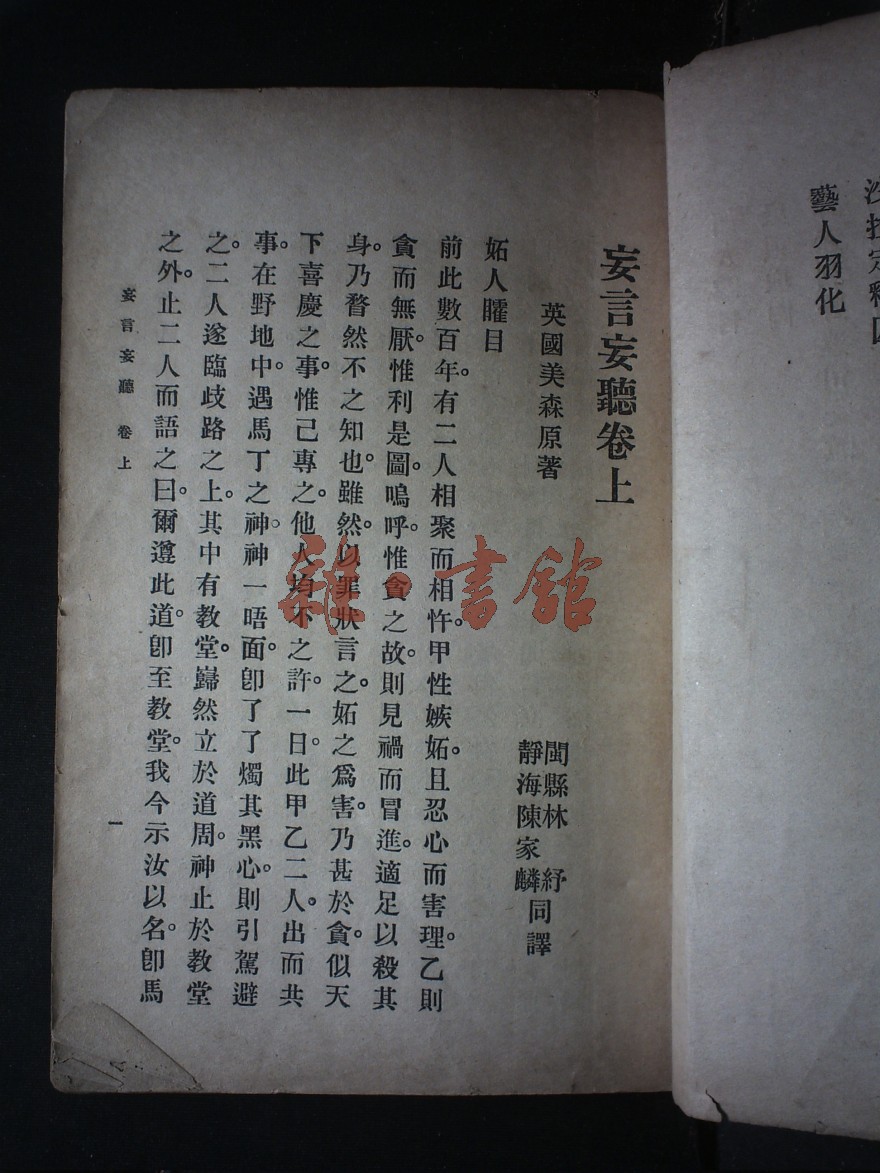 藝人羽化
妄言妄聽卷上
英國美森原著
閩縣林紓
靜海陳家麟
同譯
妬人矐目
前此數百年。有二人相聚而相忤。甲性嫉妬。且忍心而害理。乙則
貪而無厭。惟利是圖。嗚呼。惟貪之故。則見禍而冒進。適足以殺其
身。乃瞀然不之知也。雖然。以罪狀言之。妬之爲害。乃甚於貪。似天
下喜慶之事。惟己專之。他人均不之許。一日。此甲乙二人。出而共
事。在野地中。遇馬丁之神。神一晤面。卽了了燭其黑心。則引駕避
之。二人遂臨歧路之上。其中有教堂。巋然立於道周。神止於教堂
之外。止二人而語之曰。爾遵此道。卽至教堂。我今示汝以名。卽馬
妄言妄聽 卷上
一
雜·書館